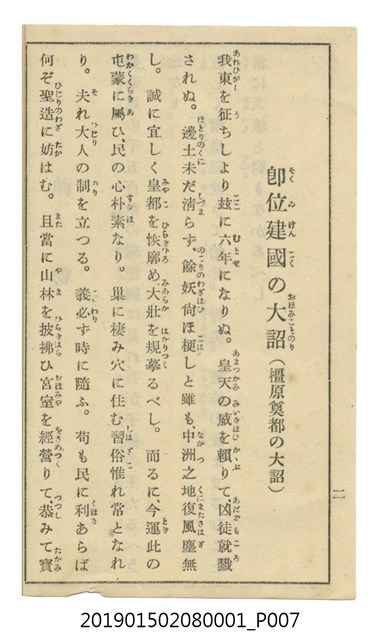 卽位建國の大詔（橿原奠都の大詔）
我東を征ちしより玆に六年になりぬ。皇天の威を賴りて、凶徒就戮
されぬ。邊土未だ淸らず、餘妖尙ほ梗しと雖も、中洲之地復風塵無
し。誠に宜しく皇都を恢廓め、大壯を規摹るべし。而るに、今運此の
屯蒙に屬ひ、民の心朴素なり。巢に棲み穴に住む習俗惟れ常となれ
り。夫れ大人の制を立つる。義必ず時に隨ふ。苟も民に利あらば
何ぞ聖造に妨はむ。且當に山林を披拂ひ宮室を經營りて、恭みて寶
二
201901502080001_P007